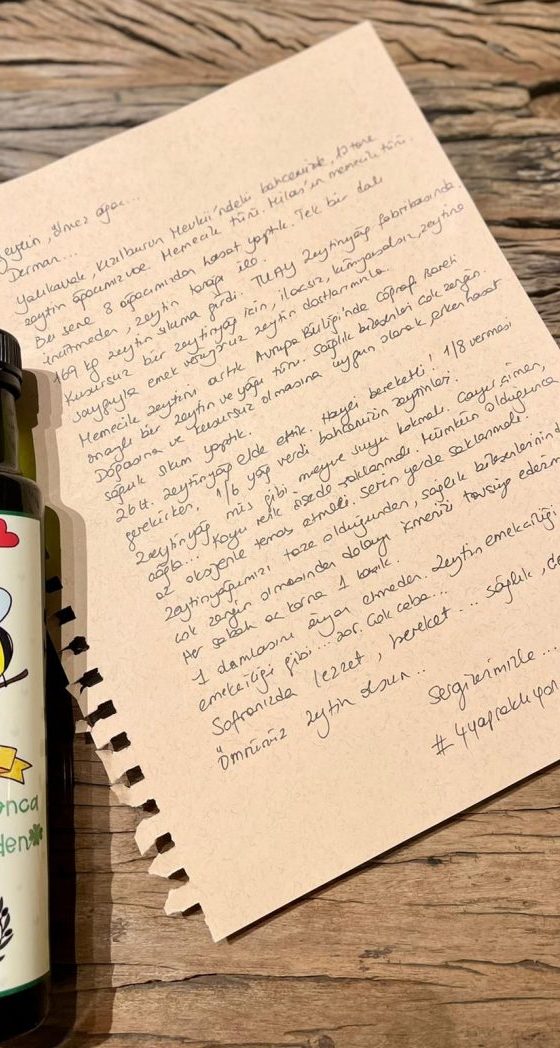 Zeytin, ölmez ağacı...
Derman...
Yalıkavak, Kızılburun Mevkii'ndeki bahcemizde, 12 tane
zeytin ağacımız var. Memecik türü. Milas'ın memecik türü.
Bu sene 8 ağacımızdan hasat yaptık. Tek bir dalı
incitmeden, zeytin tarağı ile.
169 kg zeytin sıkıma girdi. TUAY Zeytinyağı fabrikasında.
Kusursuz bir zeytinyağı için, ilaçsız, kimyasalsız, zeytine
saygıyla emek veriyoruz zeytin dostlarımızla.
Memecik zeytini artık Avrupa Birliği'nde coğrafi işareti
onaylı bir zeytin ve yağı türü. Sağlık bileşenleri çok zengin.
Doğasına ve kusursuz olmasına uygun olarak, erken hasat
soğuk sıkım yaptık.
26 lt. zeytinyağı elde ettik. Hayli bereketli! 1/8 vermesi
gerekirken, 1/6 yağ verdi bahçemizin zeytinleri.
Zeytinyağı mis gibi meyve suyu kokmalı. Çayır çimen,
ağla... Koyu renk şişede saklanmalı. Mümkün olduğunca
az oksijenle temas etmeli. Serin yerde saklanmalı.
Zeytinyağımızı taze olduğundan, sağlık bileşenlerinin
çok zengin olmasından dolayı içmenizi tavsiye ederim
Her sabah aç karna 1 kaşık.
1 damlasını ziyan etmeden. Zeytin emekçiliği
emekçiliği gibi... zor. Çok çaba...
Sofranızda lezzet, bereket... sağlık,
Ömrünüz zeytin olsun..
Sevgilerimizle...
#4yapraklıyon
onca
den